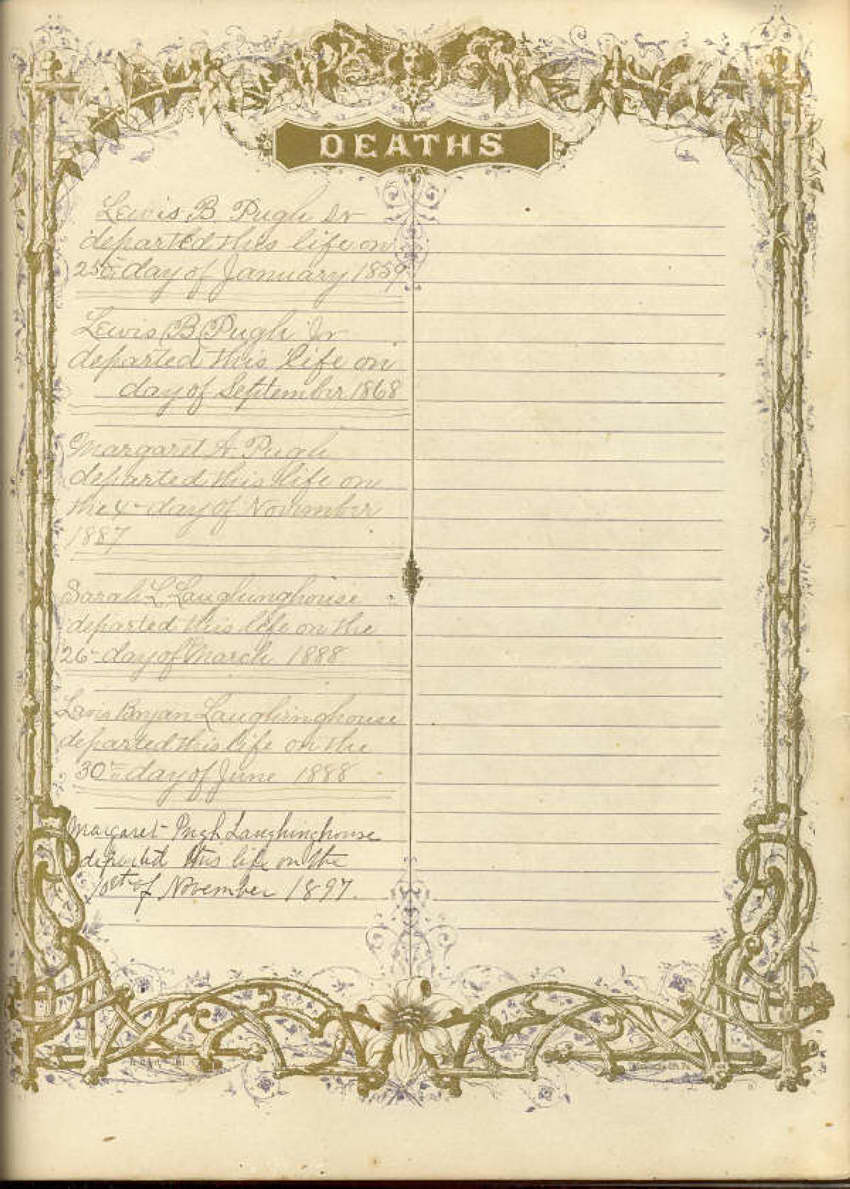 DEATHS
Lewis B Pugh Sr
departed this life on
25th day of January 1859
Lewis B Pugh Jr
departed this life on
day of September 1868
Margaret A Pugh
departed this life on
the 4th day of November
1887
Sarah L Laughinghouse
departed this life on the
26th day of March 1888
Bryan Laughinghouse
departed this life on the
30th day of June 1888
Margaret Pugh Laughinghouse
departed this life on the
10th of November 1897.